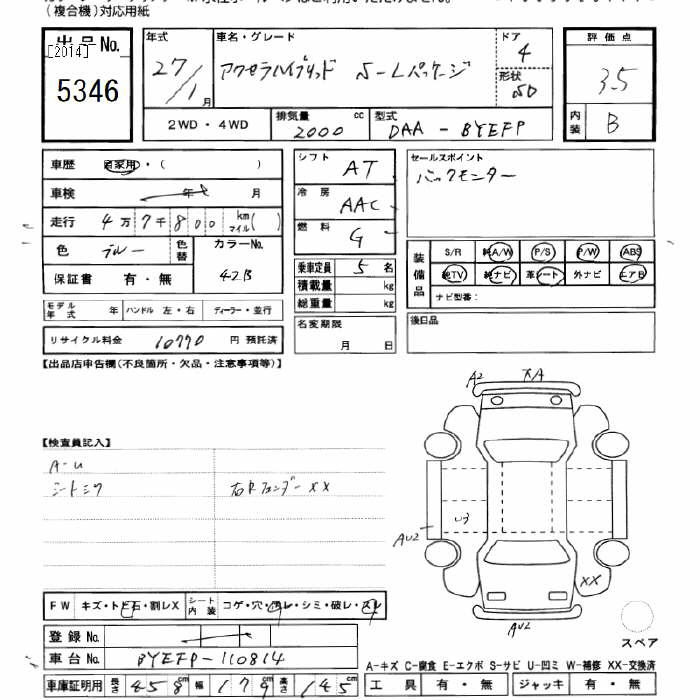 （複合機）対応用紙
出品No.
[2014]
5346
年式
27/1月
車名・グレード
アクセラハイブリッド S-Lパッケージ
ドア
4
形状
SD
評価点
3.5
内装
B
2WD・4WD
排気量
2000 cc
型式
DAA-BYEFP
車歴 自家用・( )
車検 年 月
走行 4万7千800 km マイル( )
色 ブルー 色替
カラーNo.
42B
保証書 有・無
モデル年式 年 ハンドル 左・右 ディーラー・並行
リサイクル料金 10770 円 預託済
シフト AT
冷房 AAC
燃料 G
乗車定員 5 名
積載量 kg
総重量 kg
名変期限
月 日
セールスポイント
バックモニター
装備品
S/R 純A/W P/S P/W ABS
純TV 純ナビ 革シート 外ナビ エアB
ナビ型番：
後日品
【出品店申告欄(不良箇所・欠品・注意事項等)】
【検査員記入】
A-U
シートミワ
右Rフェンダー XX
A2
XA
U3
AU2
XX
AU2
スペア
FW キズ・トビ石・割レX シート内装 コゲ・穴・切レ・シミ・破レ・スレ
登録No.
車台No. BYEFP-110814
車庫証明用 長さ 458cm 幅 179cm 高さ 145cm
A-キズ C-腐食 E-エクボ S-サビ U-凹ミ W-補修 XX-交換済
工具 有・無 ジャッキ 有・無